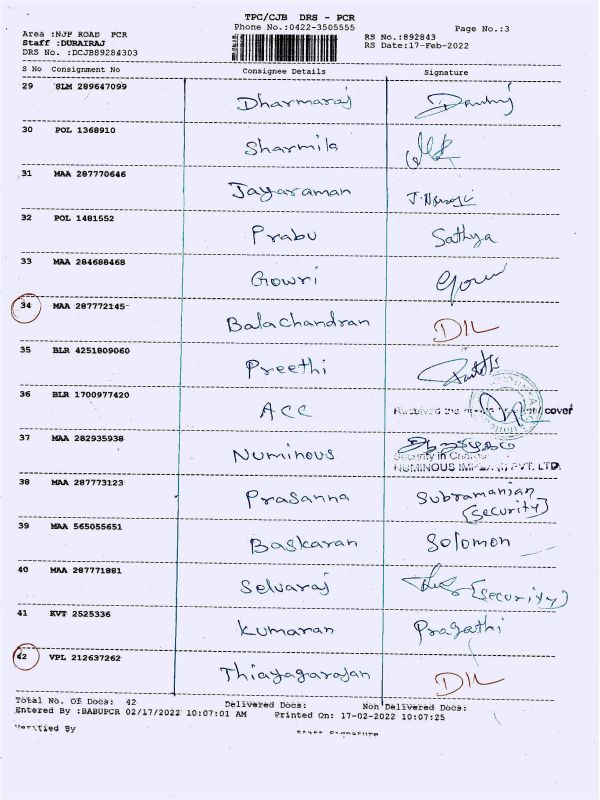 TPC/CJB DRS - PCR
Phone No.:0422-3505555
Page No.:3
Area :NJF ROAD PCR
RS No.:892843
Staff :DURAIRAJ
RS Date:17-Feb-2022
DRS No. :DCJB89284303
S No Consignment No Consignee Details Signature
29 SLM 289647099 Dharmaraj
30 POL 1368910 Sharmila
31 MAA 287770646 Jayaraman
32 POL 1481552 Prabu Sathya
33 MAA 284688468 Gowri Gowri
34 MAA 287772145 Balachandran DIL
35 BLR 4251809060 Preethi
36 BLR 1700977420 ACC Received the cover
37 MAA 282935938 Numinous
Security in
NUMINOUS PVT. LTD.
38 MAA 287773123 Prasanna Subramanian
(security)
39 MAA 565055651 Baskaran Solomon
40 MAA 287771881 Selvaraj (security)
41 KVT 2525336 Kumaran Pragathi
42 VPL 212637262 Thiayagarajan DIL
Total No. Of Docs: 42 Delivered Docs: Non Delivered Docs:
Entered By :BABUPCR 02/17/2022 10:07:01 AM Printed On: 17-02-2022 10:07:25
Verified By Staff Signature